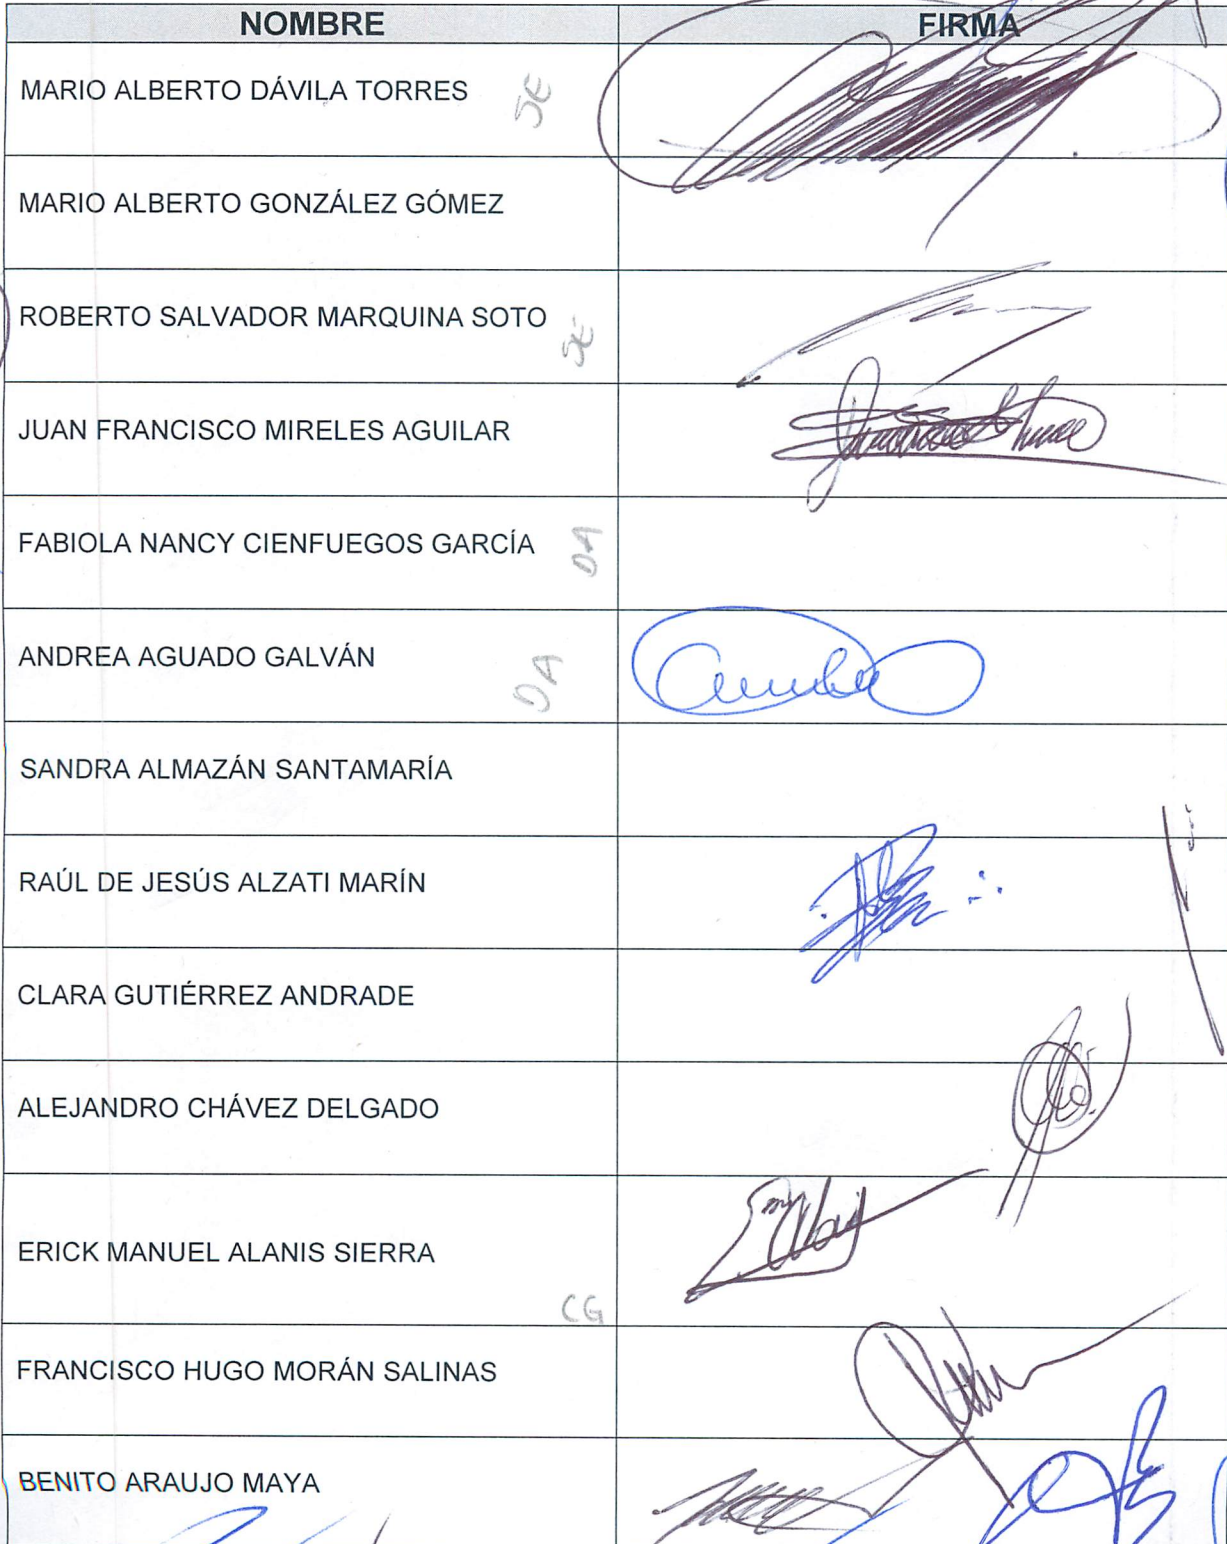 NOMBRE FIRMA
MARIO ALBERTO DÁVILA TORRES SE
MARIO ALBERTO GONZÁLEZ GÓMEZ
ROBERTO SALVADOR MARQUINA SOTO SE
JUAN FRANCISCO MIRELES AGUILAR
FABIOLA NANCY CIENFUEGOS GARCÍA DA
ANDREA AGUADO GALVÁN DA
SANDRA ALMAZÁN SANTAMARÍA
RAÚL DE JESÚS ALZATI MARÍN
CLARA GUTIÉRREZ ANDRADE
ALEJANDRO CHÁVEZ DELGADO
ERICK MANUEL ALANIS SIERRA
CG
FRANCISCO HUGO MORÁN SALINAS
BENITO ARAUJO MAYA